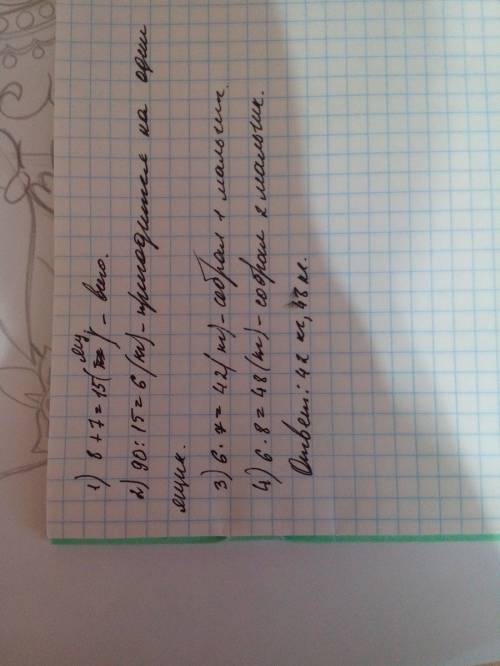 1) 8 + 7 = 15 (ящ) - всего.
2) 90 : 15 = 6 (кг) - приходится на один
ящик.
3) 6 · 7 = 42 (кг) - собрал 1 мальчик.
4) 6 · 8 = 48 (кг) - собрал 2 мальчик.
Ответ: 42 кг, 48 кг.